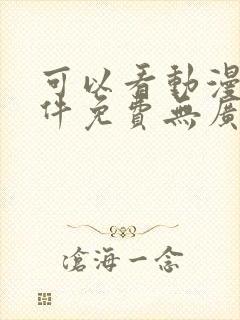 可以看動漫
件免費無廣
滄海一念